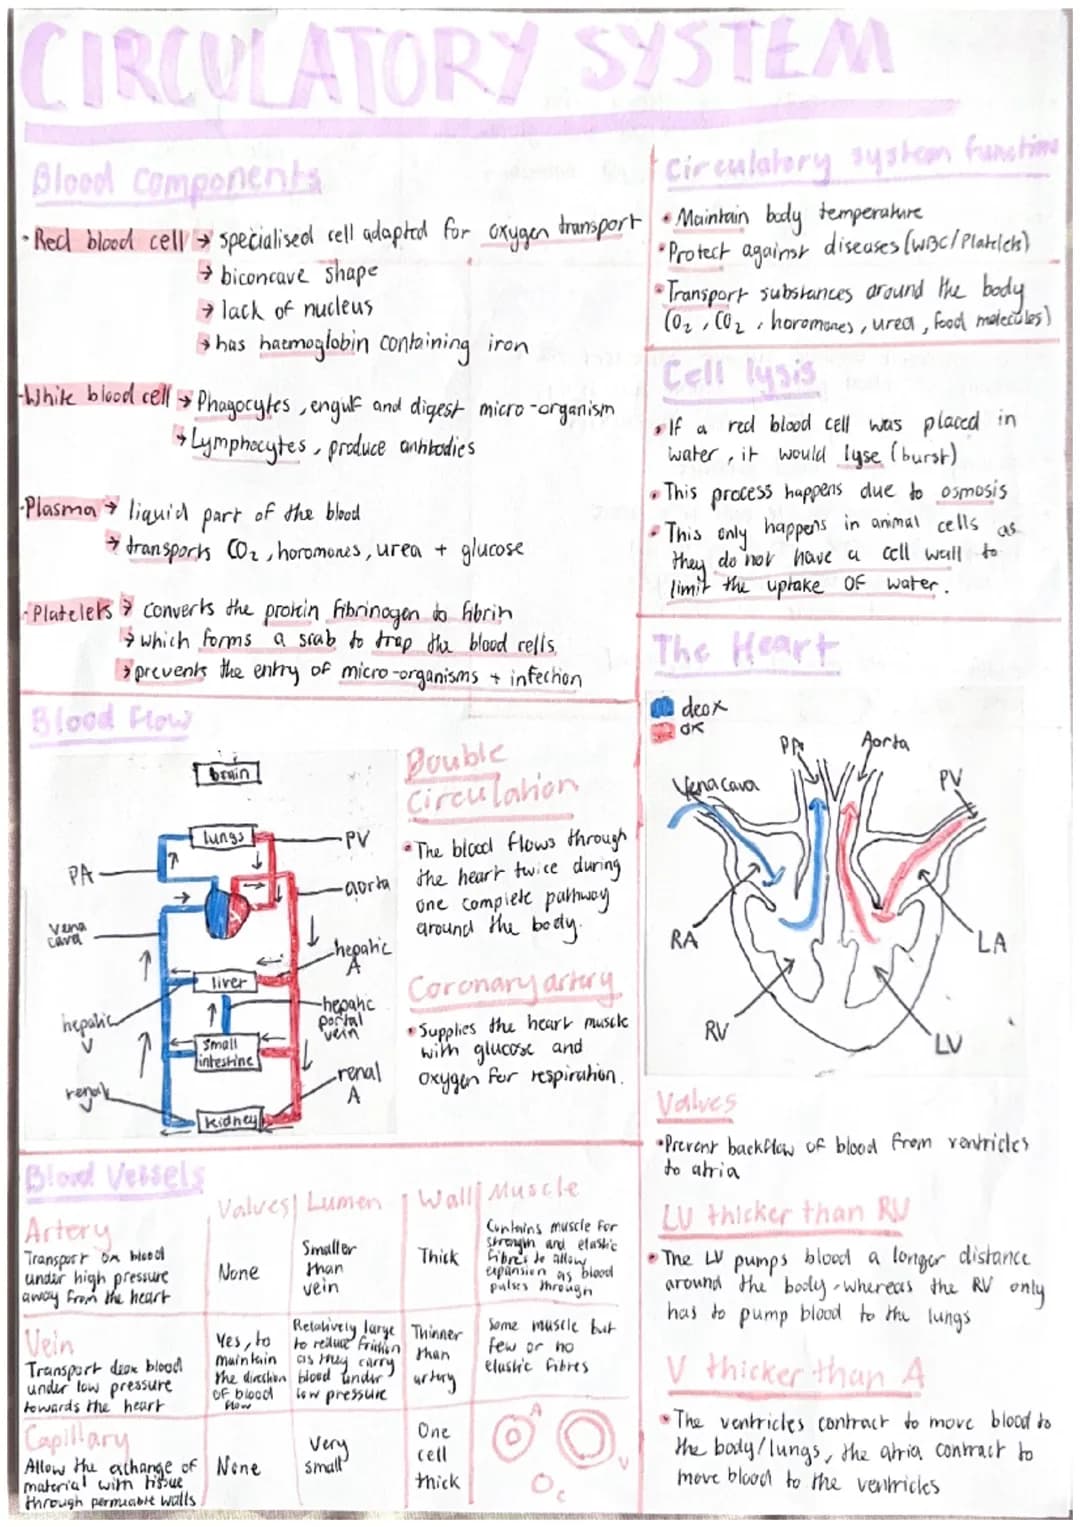 CIRCULATORY SYSTEM
Blood Components
• Red blood cell → specialised cell adapted for oxygen transport
→ biconcave shape
→ lack of nucleus
→ has haemoglobin containing iron
• White blood cell → Phagocytes, engulf and digest micro-organism
→ Lymphocytes, produce antibodies
• Plasma → liquid part of the blood
→ transports CO₂, horomones, urea + glucose
• Platelets → converts the protein fibrinogen to fibrin
→ which forms a scab to trap the blood cells
→ prevents the entry of micro-organisms + infection
Circulatory system function
• Maintain body temperature
• Protect against diseases (WBC/Platelets)
• Transport substances around the body
(O₂, CO₂, horomones, urea, food molecules)
Cell lysis
• If a red blood cell was placed in
water, it would lyse (burst)
• This process happens due to osmosis
• This only happens in animal cells as
they do not have a cell wall to
limit the uptake OF water.
The Heart
deox
ox
PA
Aorta
Vena cava
PV
RA
LA
RV
LV
Blood Flow
brain
lungs
PV
PA
aorta
vena
cava
hepatic
A
liver
hepatic
V
hepatic
portal
vein
small
intestine
renal
V
renal
A
kidney
Double
Circulation
• The blood flows through
the heart twice during
one complete pathway
around the body.
Coronary artery
• Supplies the heart muscle
with glucose and
oxygen for respiration.
Valves
• Prevent backflow of blood from ventricles
to atria
LV thicker than RV
• The LV pumps blood a longer distance
around the body, whereas the RV only
has to pump blood to the lungs
V thicker than A
• The ventricles contract to move blood to
the body/lungs, the atria contract to
move blood to the ventricles
Blood Vessels
Valves Lumen Wall Muscle
Artery
Transport ox blood
under high pressure
away from the heart
None
Smaller
than
vein
Thick
Contains muscle for
strength and elastic
fibres to allow
expansion as blood
pulses through
Vein
Transport deox blood
under low pressure
towards the heart
Yes, to
maintain
the direction
of blood
flow
Relatively large
to reduce friction
as they carry
blood under
low pressure
Thinner
than
artery
Some muscle but
few or no
elastic fibres
Capillary
Allow the exchange of
material with tissue
through permeable walls
None
Very
small
One
cell
thick
A
V
C